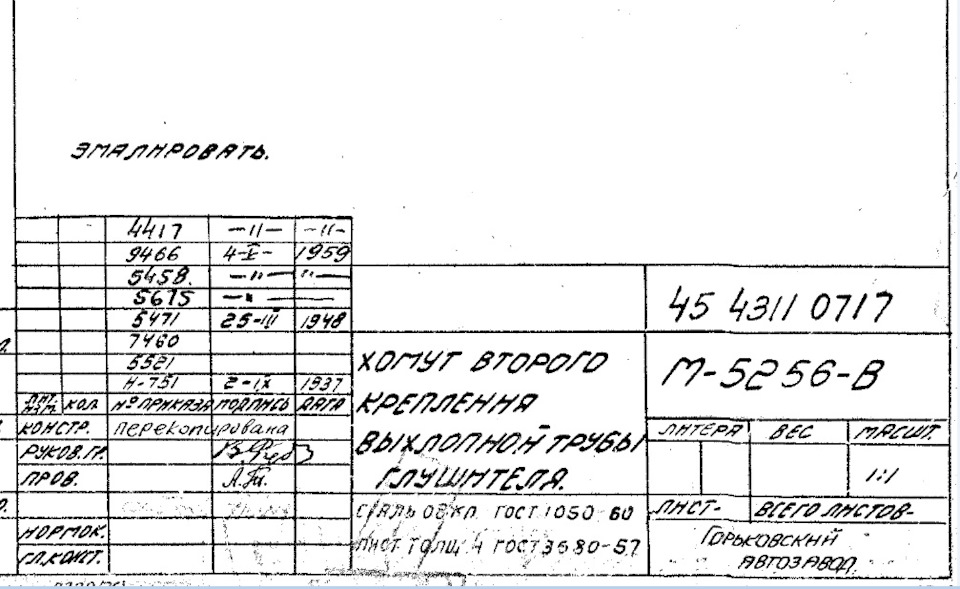 ЭМАЛИРОВАТЬ.
4417 —〃— —〃—
9466 4-X- 1959
5458. —〃— 〃—
5675 —〃—
5471 25-III 1948
7460
5521
Н-751 2-IX 1937
ЛИТ. ИЗМ. КОЛ. № ПРИКАЗА ПОДПИСЬ ДАТА
КОНСТР. перекопирована
РУКОВ. ГР.
ПРОВ.
НОРМОК.
ГЛ. КОНСТ.
ХОМУТ ВТОРОГО
КРЕПЛЕНИЯ
ВЫХЛОПНОЙ ТРУБЫ
ГЛУШИТЕЛЯ.
СТАЛЬ 08КП ГОСТ 1050-60
ЛИСТ ТОЛЩ 4 ГОСТ 3680-57
45 4311 0717
М-5256-В
ЛИТЕРА ВЕС МАСШТ.
1:1
ЛИСТ- ВСЕГО ЛИСТОВ-
ГОРЬКОВСКИЙ
АВТОЗАВОД.